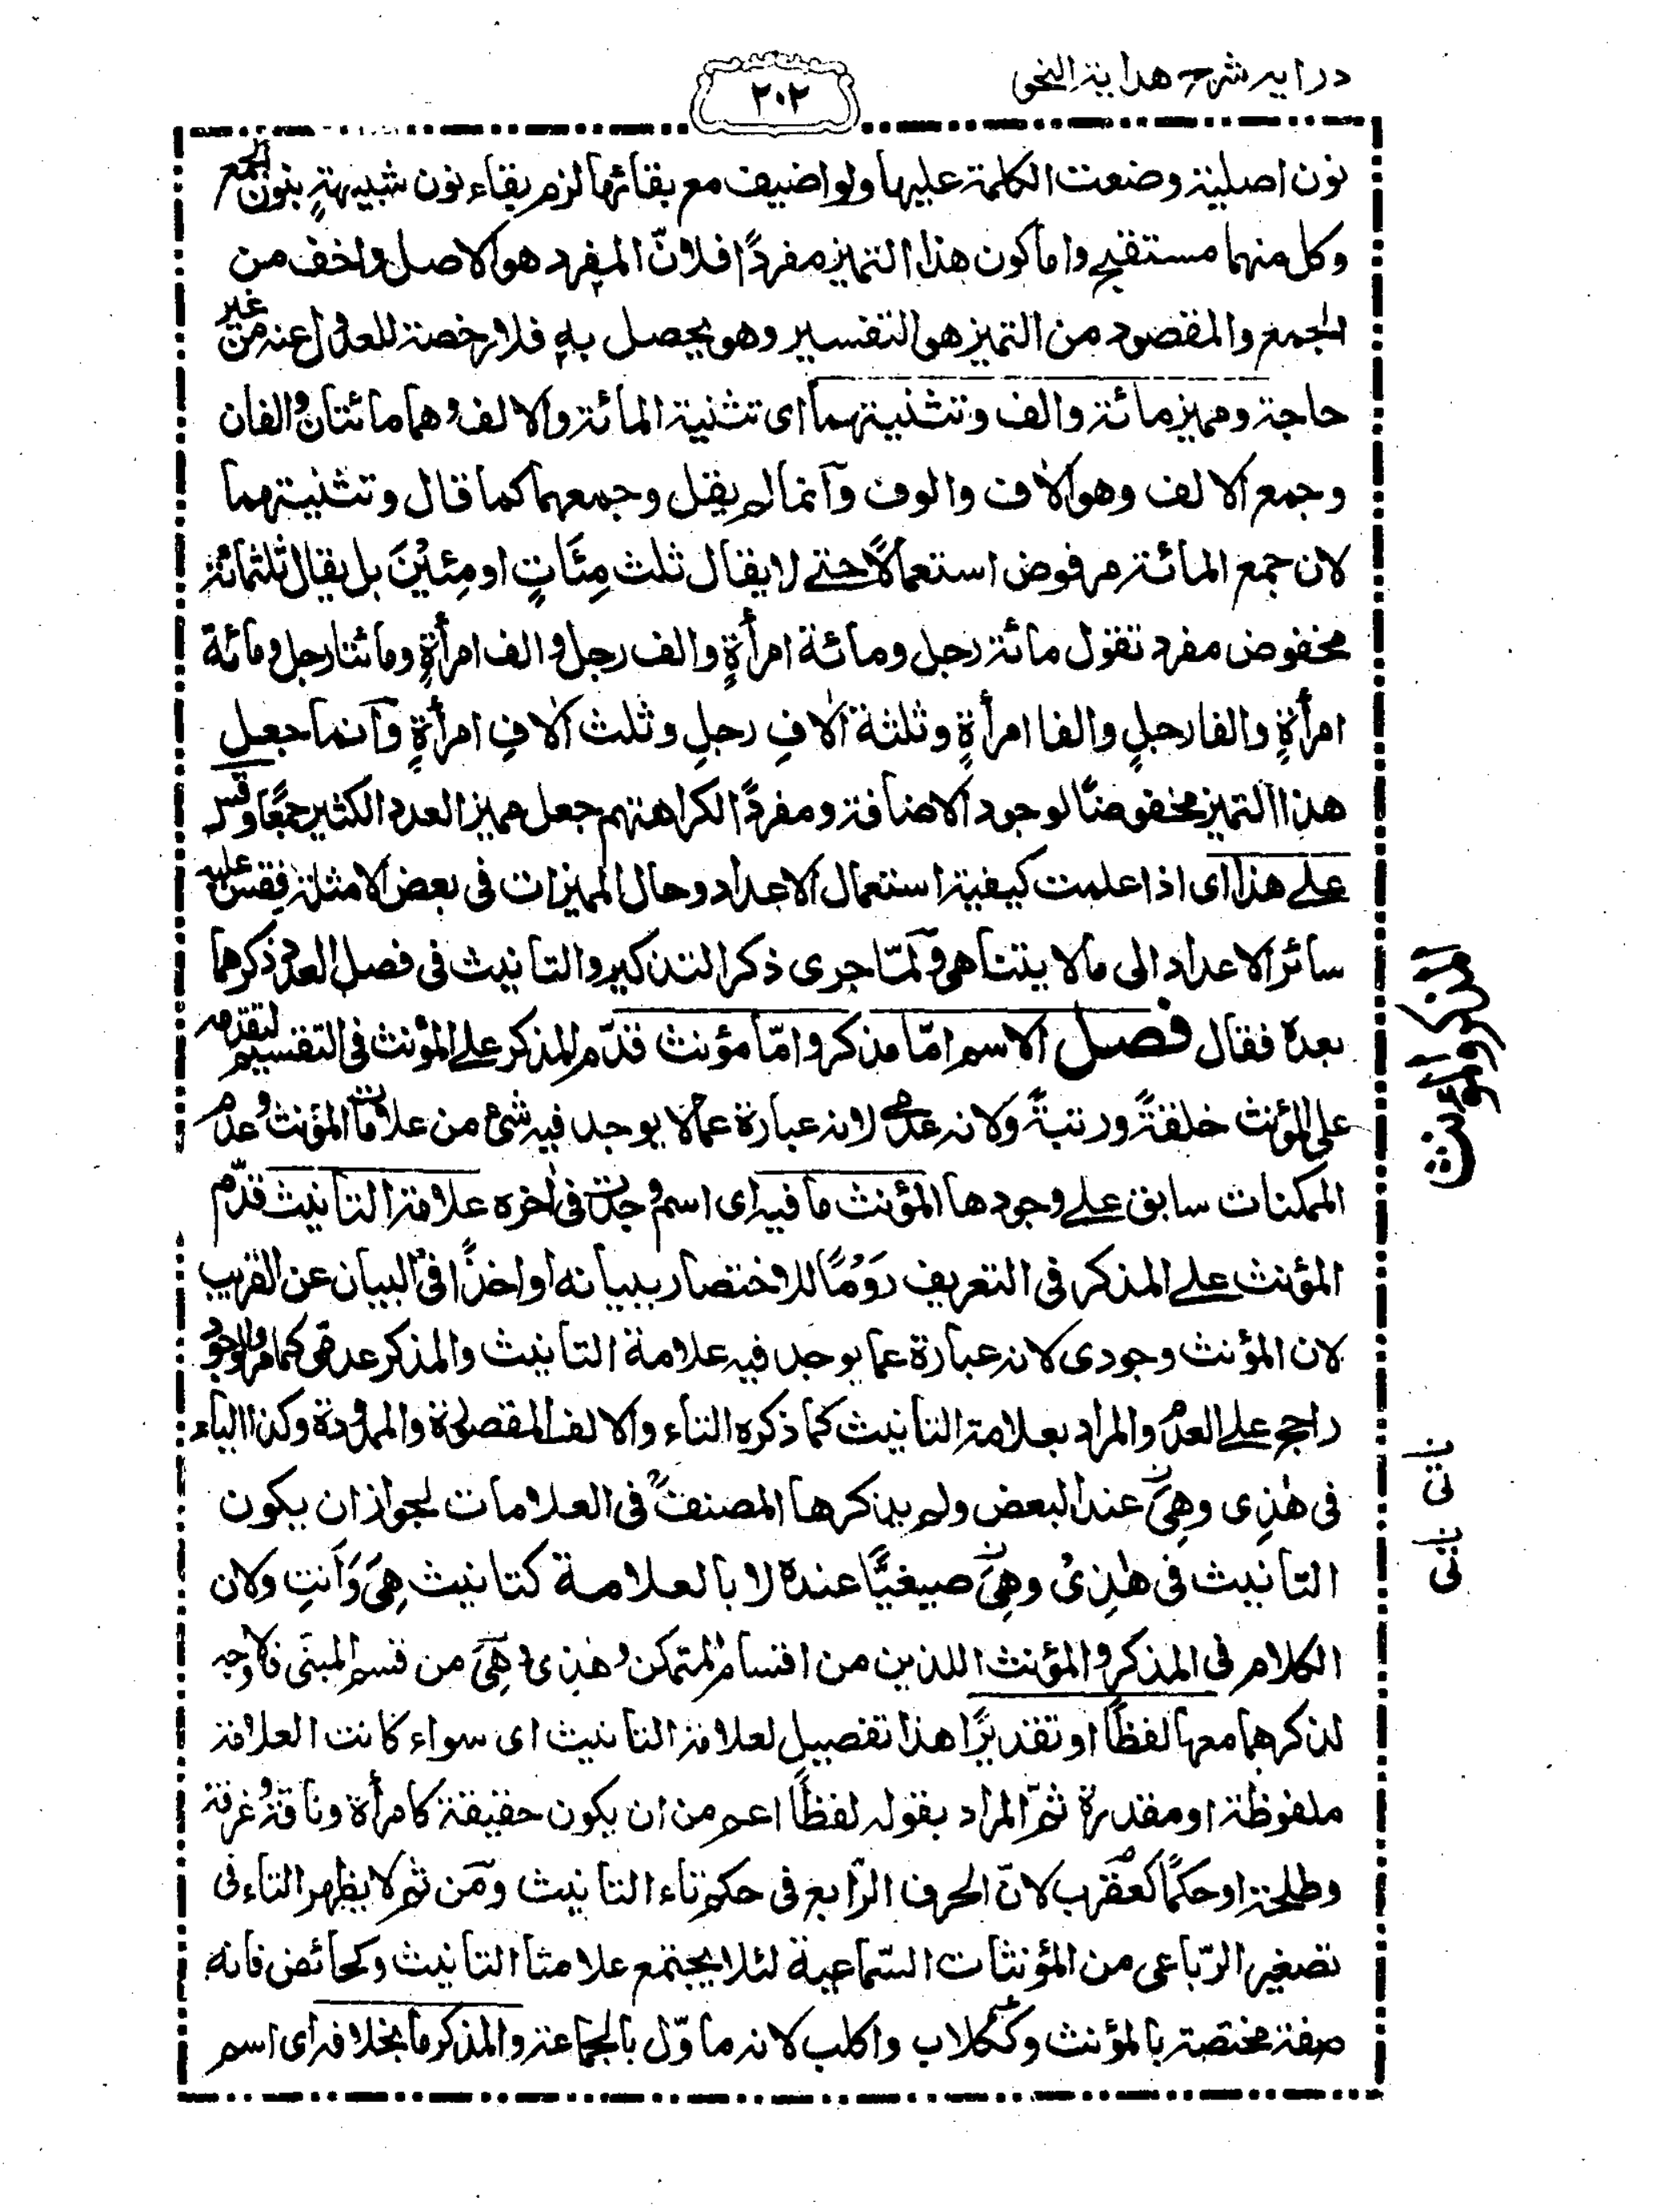 درایہ شرح ھدایۃ النحو
۲۰۲
نون اصلیۃ وضعت الکلمۃ علیہا ولو اضیف مع بقائہا لزم بقاء نون شبیہۃٍ بنون الجمع
وکل منہما مستقبح واما کون ھذا التمیز مفردًا فلانّ المفرد ھو الاصل واخف من
الجمع والمقصود من التمیز ھو التفسیر وھو یحصل بہٖ فلا رخصۃ للعدول عنہ من غیر
حاجۃ وممیز مائۃ والف وتثنیتہما ای تثنیۃ المائۃ والالف وھما مائتان والفان
وجمع الالف وھو اٰلاف والوف وانما لم یقل وجمعہما کما قال وتثنیتہما
لان جمع المائۃ مرفوض استعمالًا حتے لا یقال ثلث مِئَاتٍ او مِئِیْنَ بل یقال ثلثمائۃ
مخفوض مفرد تقول مائۃ رجل ومائۃ امرأۃٍ والف رجل والف امرأۃٍ ومائتا رجل ومائۃ
امرأۃٍ والفا رجلٍ والفا امرأۃٍ وثلثۃ اٰلافِ رجلٍ وثلث اٰلافِ امرأۃٍ وانما جعل
ھذا التمیز مخفوضًا لوجود الاضافۃ ومفردًا لکراھتہم جعل ممیز العدد الکثیر جمعًا وقس
علے ھذا ای اذا علمت کیفیۃ استعمال الاعداد وحال الممیزات فی بعض الامثلۃ فقس علیہ
سائر الاعداد الی مالا یتناھی ولمّا جری ذکر التذکیر والتانیث فی فصل العدد ذکرھما
بعدہ فقال فصل الاسم امّا مذکر وامّا مؤنث قدّم المذکر علے المؤنث فی التقسیم لتقدمہ
علی المؤنث خلقۃً ورتبۃً ولانہ عدمی لانہ عبارۃ عما لا یوجد فیہ شئ من علامات المؤنث وعدم
الممکنات سابق علے وجودھا المؤنث ما فیہ ای اسم وجدت فی اٰخرہ علامۃ التانیث قدّم
المؤنث علے المذکر فی التعریف رَوْمًا للاختصار ببیانہ او اخذًا فی البیان عن القریب
لان المؤنث وجودی لانہ عبارۃ عما یوجد فیہ علامۃ التانیث والمذکر عدمی کما مر والوجود
راجح علے العدم والمراد بعلامۃ التانیث کما ذکرہ التاء والالف المقصورۃ والممدودۃ وکذا الیاء
فی ھٰذِی وھِیَ عند البعض ولم یذکرھا المصنفؒ فی العلامات لجواز ان یکون
التانیث فی ھٰذِیْ وھِیَ صیغیًّا عندہ لا بالعلامۃ کتانیث ھِیَ وَاَنتِ ولان
الکلام فی المذکر والمؤنث اللذین من اقسام المتمکن وھذی وھِیَ من قسم المبنی فلا وجہ
لذکرھما معہا لفظًا او تقدیرًا ھذا تفصیل لعلامۃ التانیث ای سواء کانت العلامۃ
ملفوظۃ او مقدرۃ ثمّ المراد بقولہ لفظًا اعم من ان یکون حقیقۃ کامرأۃ وناقۃ وغرفۃ
وطلحۃ او حکمًا کعقرب لانّ الحرف الرّابع فی حکم تاء التانیث ومن ثم لا یظہر التاء فی
تصغیر الرّباعی من المؤنثات السّماعیۃ لئلا یجتمع علامتا التانیث وکحائض فانہ
صفۃ مختصۃ بالمؤنث وککلاب واکلب لانہ ماوّل بالجماعۃ والمذکر ما بخلافہ ای اسم
المذکر والمؤنث